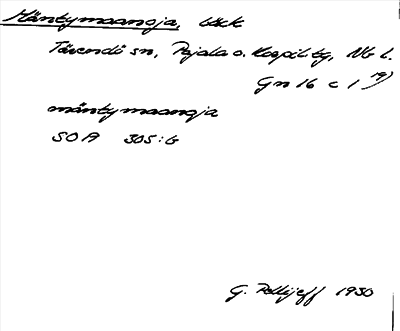 Mäntymaanoja, bäck
Tärendö sn, Pajala o. Korpil. tg, Nb l.
Gn 16 c 1 19)
mäntymaanoja
SOA 305:6
G. Pellijeff 1950